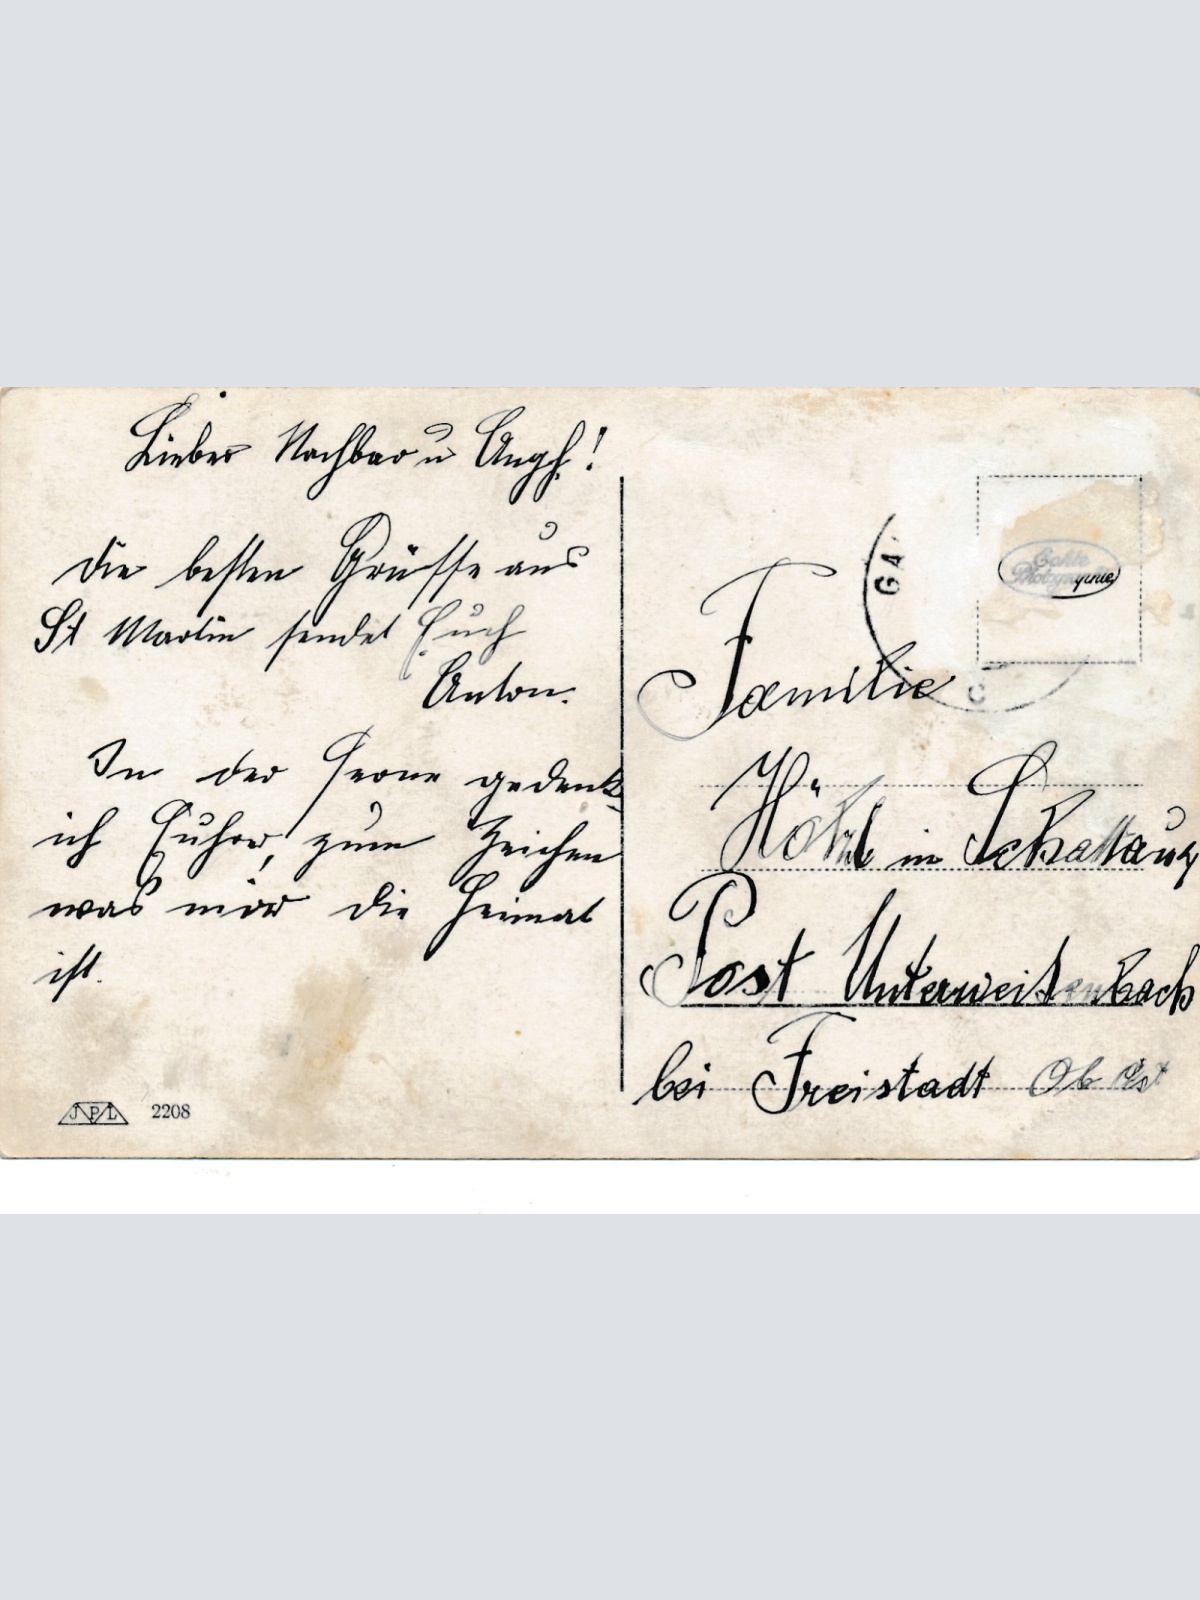 Lieber Nachbar u Angh.!
die besten Grüsse aus
St Martin sendet Euch
Anton.
In der Ferne gedenk
ich Euher, zum Zeichen
was mir die Heimat
ist.
JPL 2208
Echte
Photographie
GA
Familie
Hölzl in Schattau
Post Unterweißenbach
bei Freistadt Ob Öst